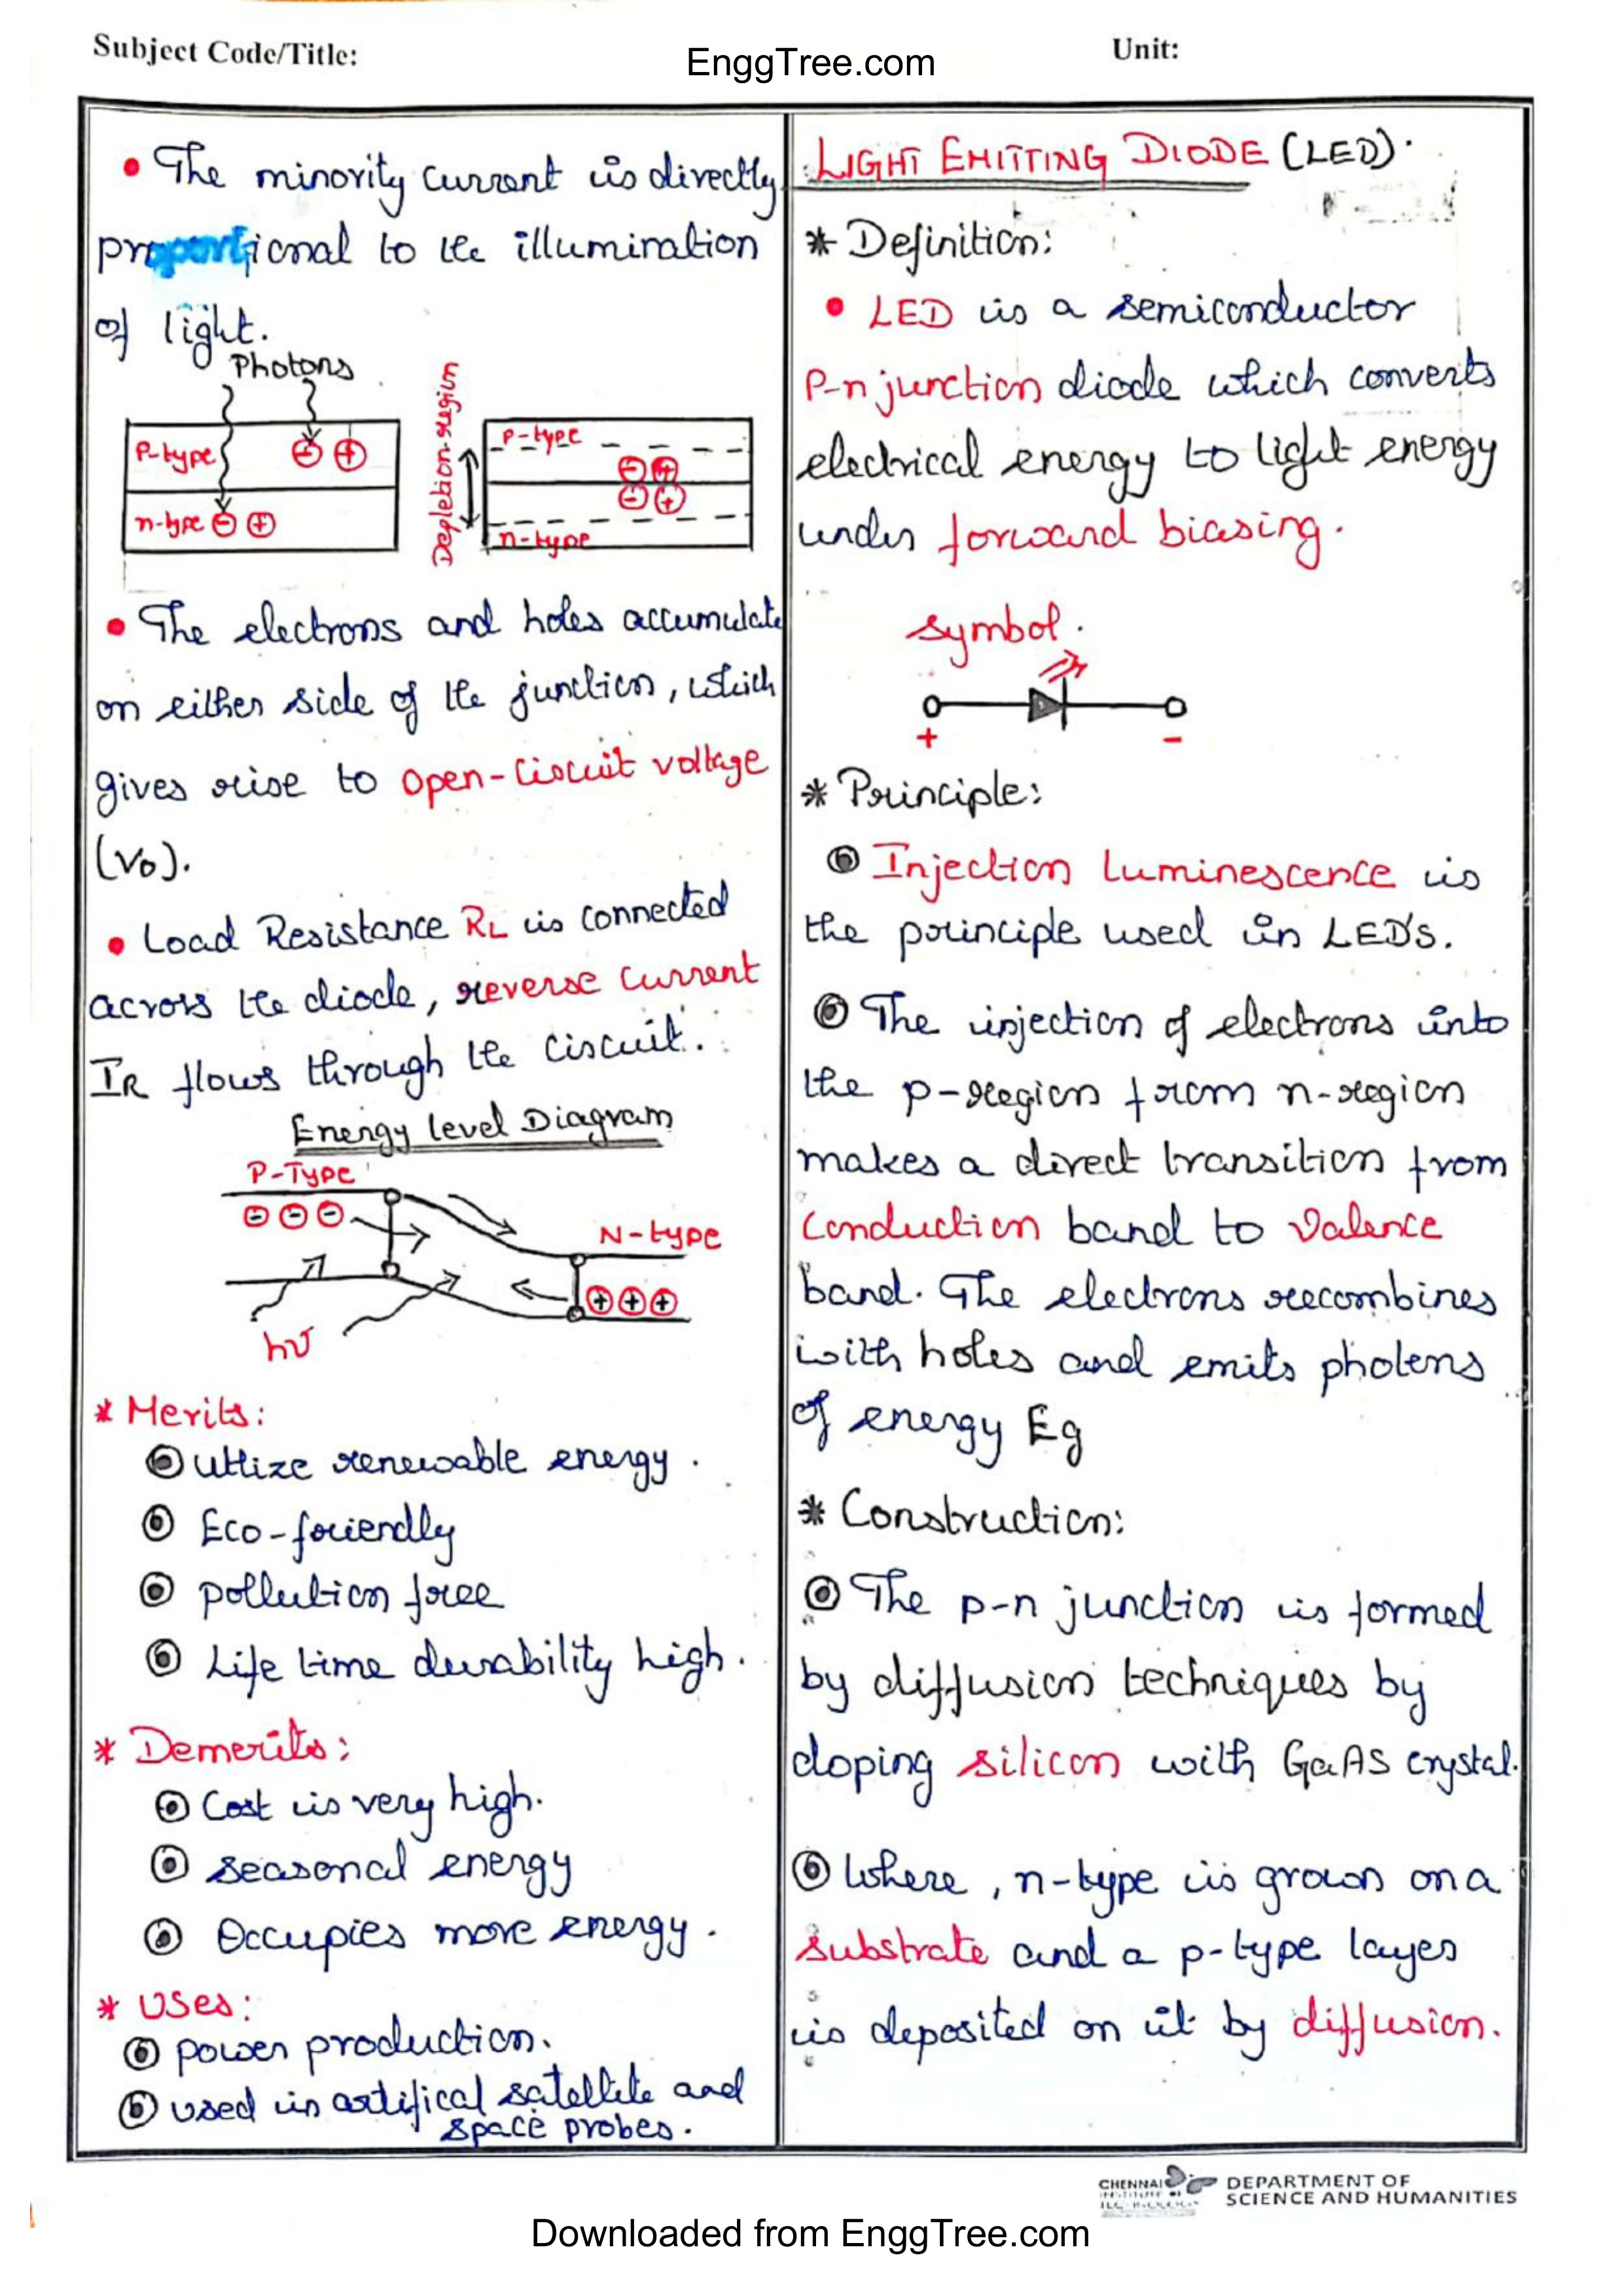 Subject Code/Title:
EnggTree.com
Unit:
• The minority current is directly
proportional to the illumination
of light.
Photons
P-type
n-type
Depletion-region
P-type
n-type
• The electrons and holes accumulate
on either side of the junction, which
gives rise to open-circuit voltage
(Vo).
• Load Resistance RL is connected
across the diode, reverse current
IR flows through the circuit.
Energy level Diagram
P-Type
N-type
hν
* Merits:
utlize renewable energy.
Eco-friendly
pollution free
Life time durability high.
* Demerits:
Cost is very high.
seasonal energy
Occupies more energy.
* Uses:
power production.
used in artifical satellite and
space probes.
LIGHT EMITTING DIODE (LED).
* Definition:
• LED is a semiconductor
P-n junction diode which converts
electrical energy to light energy
under forward biasing.
symbol.
+ -
* Principle:
Injection Luminescence is
the principle used in LED'S.
The injection of electrons into
the p-region from n-region
makes a direct transition from
Conduction band to Valence
band. The electrons recombines
with holes and emits photons
of energy Eg
* Construction:
The p-n junction is formed
by diffusion techniques by
doping silicon with GaAS crystal.
Where, n-type is grown on a
substrate and a p-type layer
is deposited on it by diffusion.
CHENNAI
DEPARTMENT OF
SCIENCE AND HUMANITIES
Downloaded from EnggTree.com